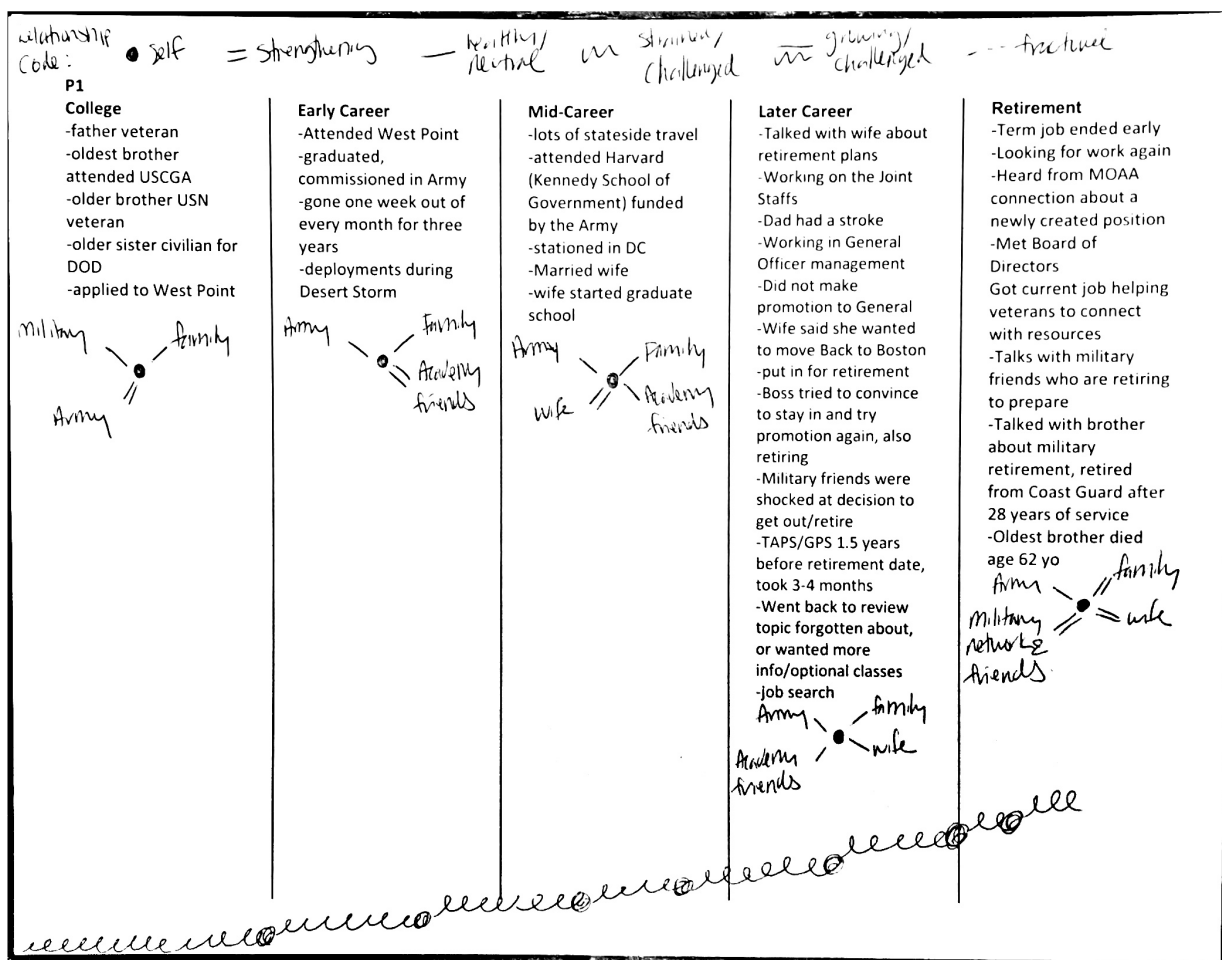 relationship
code:
self
= strengthening
— healthy/
neutral
strained/
challenged
growing/
challenged
--- fracture
P1
College
-father veteran
-oldest brother
attended USCGA
-older brother USN
veteran
-older sister civilian for
DOD
-applied to West Point
Military
family
Army
Early Career
-Attended West Point
-graduated,
commissioned in Army
-gone one week out of
every month for three
years
-deployments during
Desert Storm
Army
Family
Academy
friends
Mid-Career
-lots of stateside travel
-attended Harvard
(Kennedy School of
Government) funded
by the Army
-stationed in DC
-Married wife
-wife started graduate
school
Army
Family
wife
Academy
friends
Later Career
-Talked with wife about
retirement plans
-Working on the Joint
Staffs
-Dad had a stroke
-Working in General
Officer management
-Did not make
promotion to General
-Wife said she wanted
to move Back to Boston
-put in for retirement
-Boss tried to convince
to stay in and try
promotion again, also
retiring
-Military friends were
shocked at decision to
get out/retire
-TAPS/GPS 1.5 years
before retirement date,
took 3-4 months
-Went back to review
topic forgotten about,
or wanted more
info/optional classes
-job search
Army
family
wife
Academy
friends
Retirement
-Term job ended early
-Looking for work again
-Heard from MOAA
connection about a
newly created position
-Met Board of
Directors
Got current job helping
veterans to connect
with resources
-Talks with military
friends who are retiring
to prepare
-Talked with brother
about military
retirement, retired
from Coast Guard after
28 years of service
-Oldest brother died
age 62 yo
Army
family
Military
network &
friends
wife